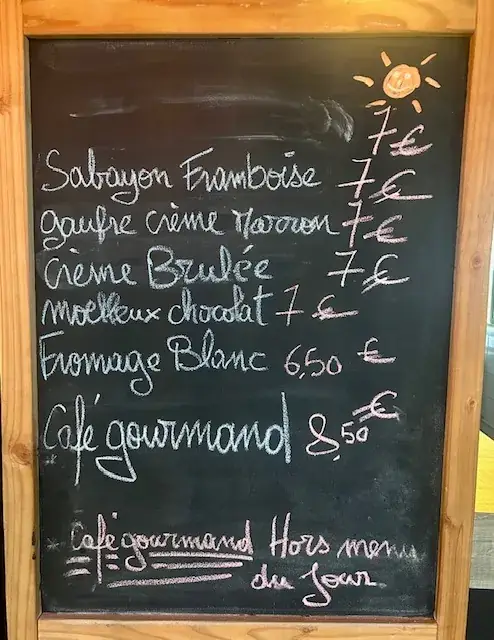 7 €
Sabayon Framboise 7 €
gaufre crème Marron 7 €
Crème Brulée 7 €
moelleux chocolat 7 €
Fromage Blanc 6,50 €
Café gourmand 8,50 €
Café gourmand Hors menu
du Jour